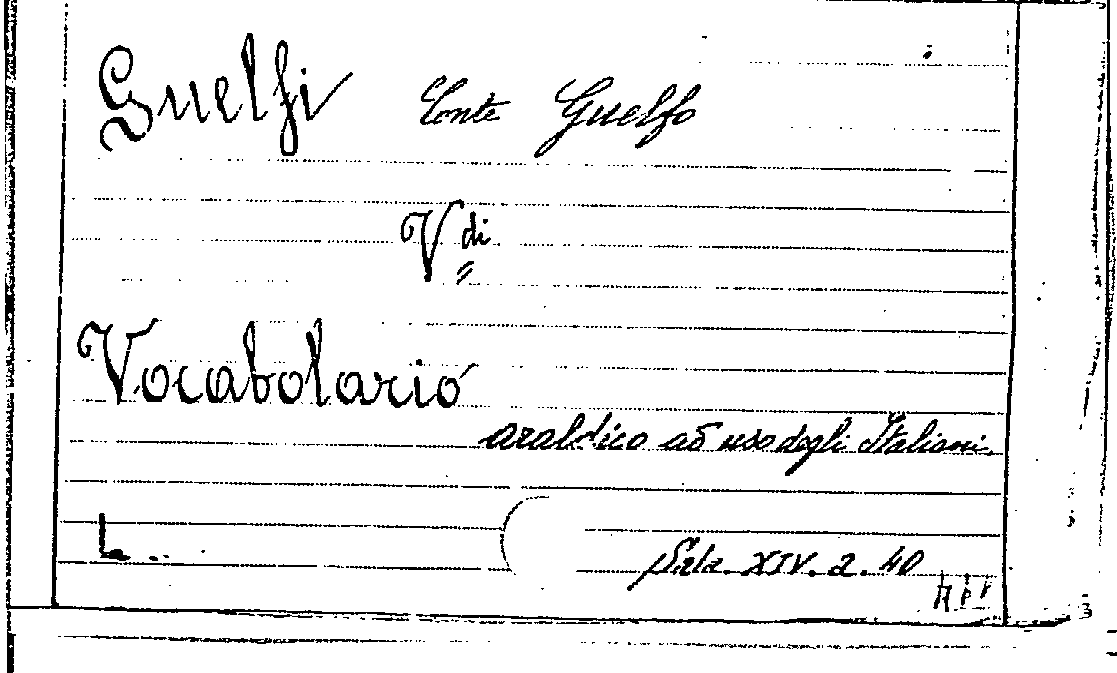 Guelfi Conte Guelfo
V di
"
Vocabolario
araldico ad uso degli Italiani.
Sala. XIV. 2. 40